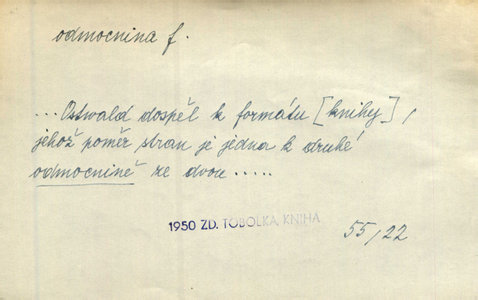 odmocnina f.
...Ostwald dospěl k formátu [knihy],
jehož poměr stran je jedna k druhé
odmocnině ze dvou.....
1950 ZD. TOBOLKA, KNIHA
55/22